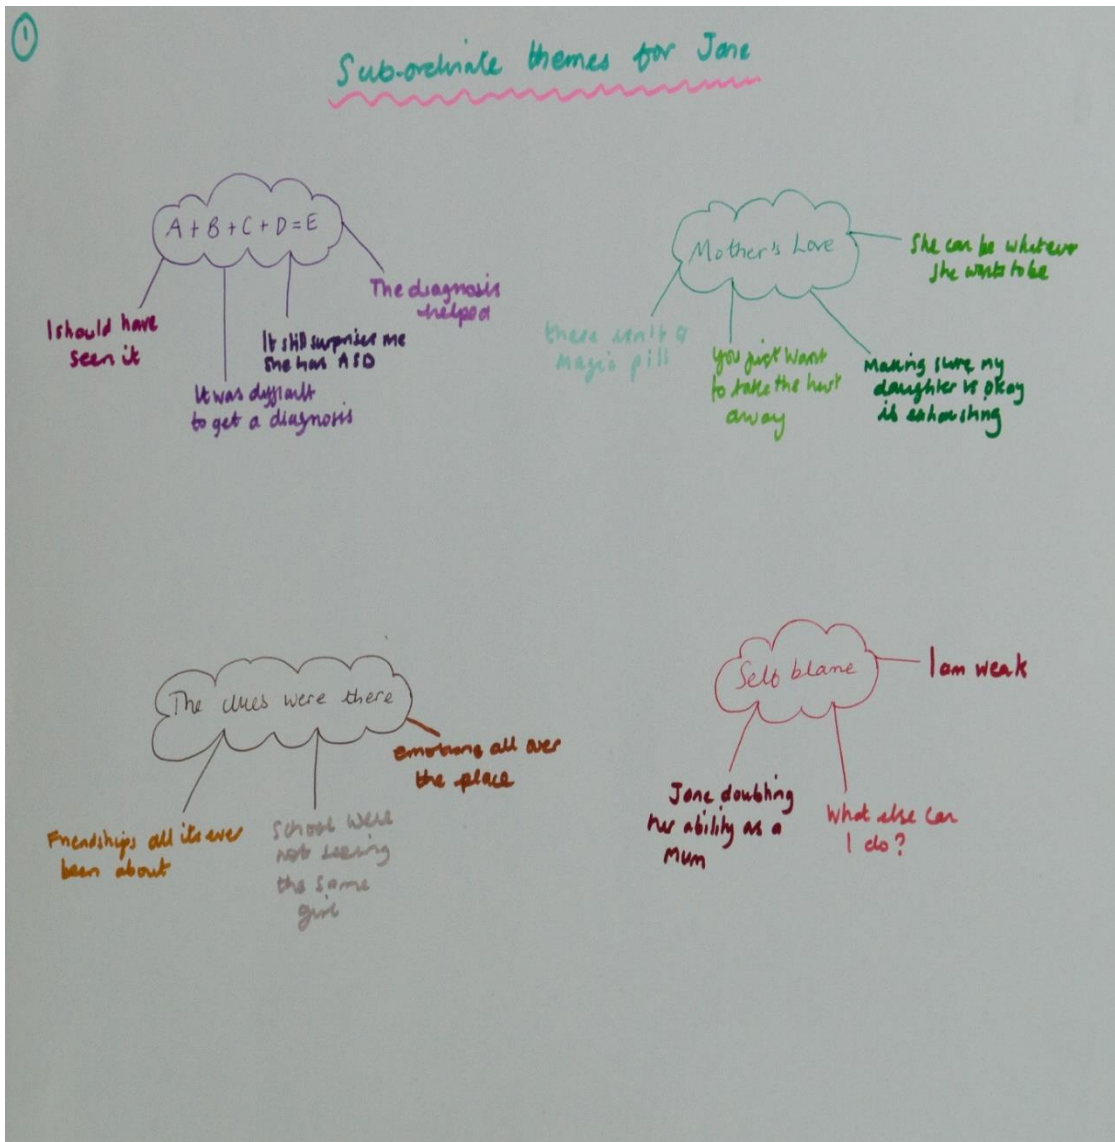 1
Sub-ordinate themes for Jane
A + B + C + D = E
I should have
seen it
It was difficult
to get a diagnosis
It still surprises me
She has ASD
The diagnosis
helped
Mother's Love
there isn't a
magic pill
You just want
to take the hurt
away
Making sure my
daughter is okay
is exhausting
She can be whatever
she wants to be
The clues were there
Friendships all its ever
been about
School were
not seeing
the same
girl
emotions all over
the place
Self blame
Jane doubting
her ability as a
Mum
What else can
I do?
I am weak